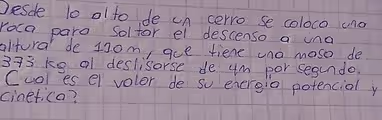 Desde lo alto de un cerro se coloca una
roca para soltar el descenso a una
altura de 110m, que tiene una masa de
373 kg al deslisarse de 4m por segundo.
Cual es el valor de su energia potencial y
cinética?